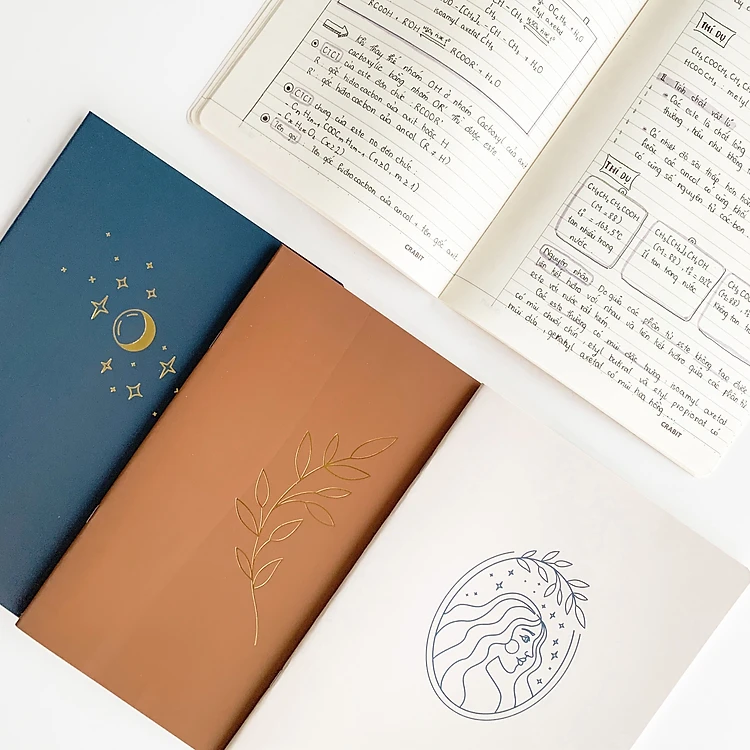 RCOOH + ROH RCOOR' + H₂O
isoamyl axetat
etyl axetat
Khi thay thế nhóm OH ở nhóm Cacboxyl của
cacboxylic bằng nhóm OR' thì được este.
CTCT của este đơn chức: RCOOR'
R: gốc hiđrocacbon của axit hoặc H
R': gốc hiđrocacbon của ancol (R ≠ H)
CTCT chung của este no đơn chức:
(x≥2)
Tên gọi:
Tên gốc hiđrocacbon của ancol + tên gốc axit
CRABIT
THÍ DỤ
CH₃COOCH
HCOOCH₃: metyl
II. Tính chất vật lí
Các este là chất lỏng
thường, hầu như không
có nhiệt độ sôi thấp hơn
hoặc các ancol có cùng khối
có cùng số nguyên tử cacbon
THÍ DỤ
CH₃CH₂CH₂COOH
(M = 88)
t°s = 163,5°C
tan nhiều trong
nước
CH₃[CH₂]₃CH₂OH
(M = 88),
ít tan trong nước
Không tan
Nguyên nhân: Do giữa các phân tử este không tạo được
liên kết hiđro với nhau và liên kết hiđro giữa các phân tử
este với nước rất kém.
Các este thường có mùi đặc trưng, isoamyl axetat
có mùi chuối chín, etyl butirat và etyl propionat có
mùi dứa, geranyl axetat có mùi hoa hồng...
CRABIT